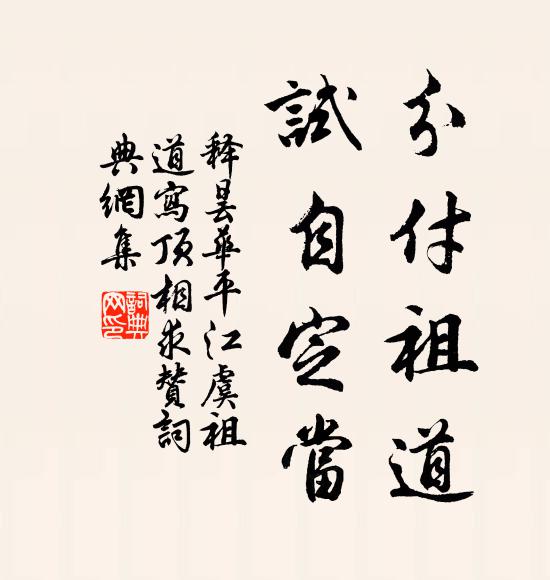 分付祖道
試自定當
释昙華平江虞祖
道寫頂相求贊詞
典網集
詞典网印